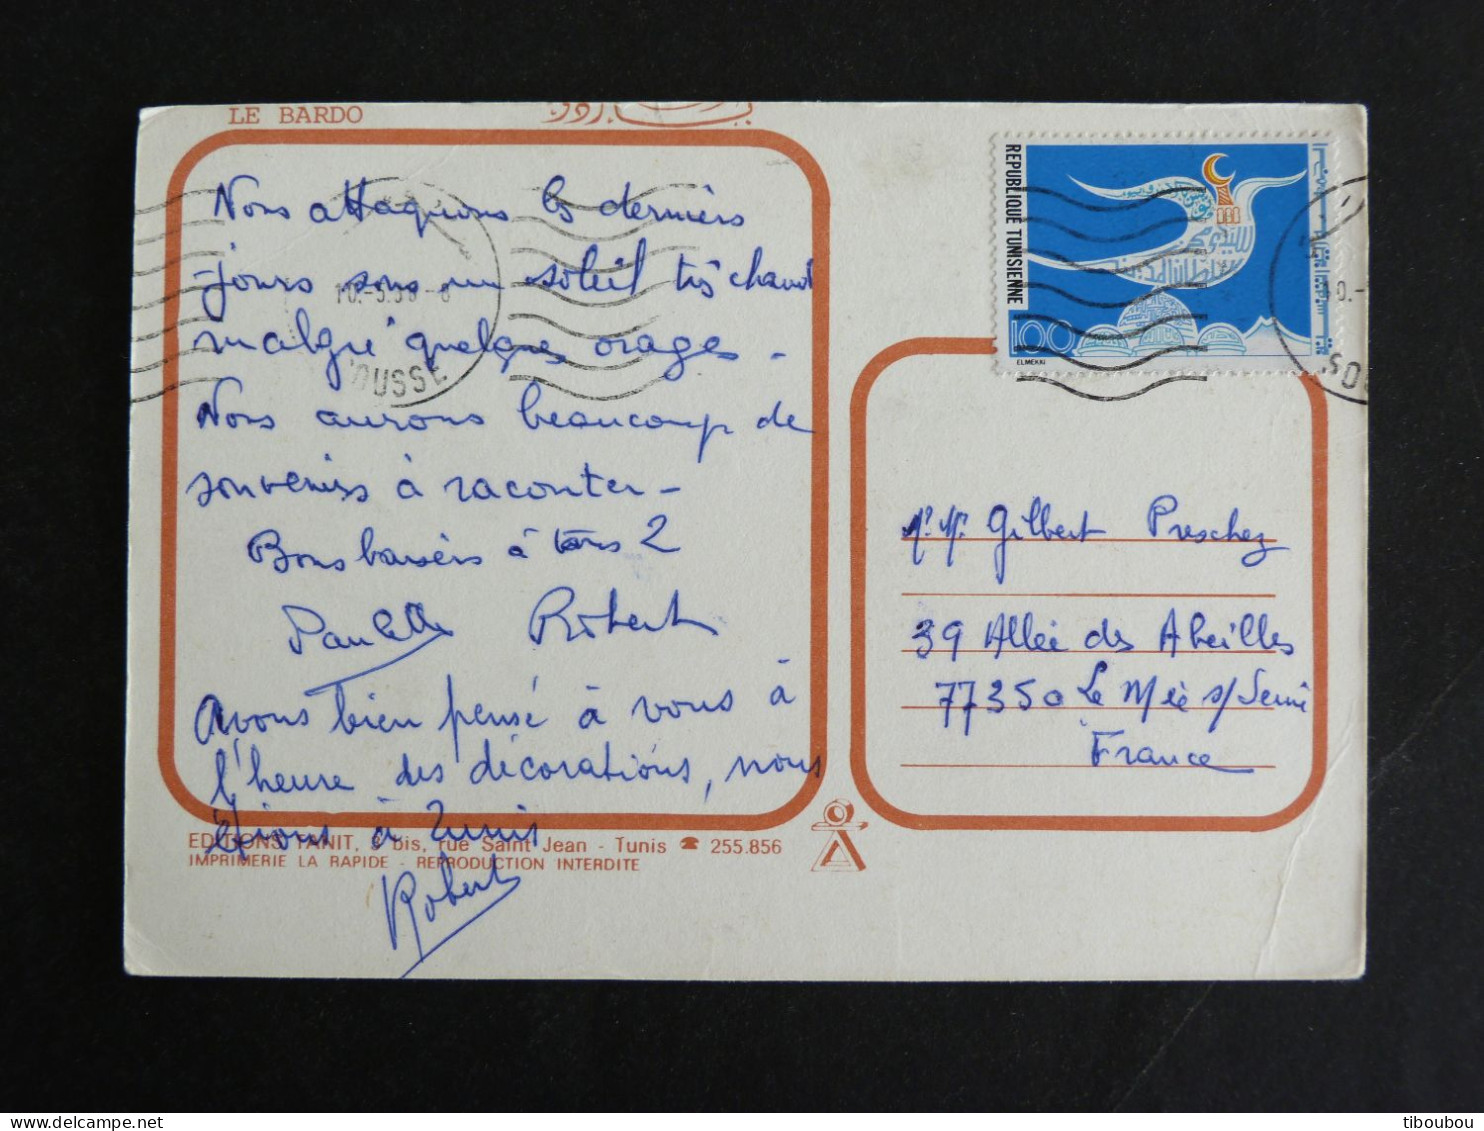 LE BARDO
Nous attaquons les derniers
jours sous un soleil très chaud
malgré quelques orages -
Nous aurons beaucoup de
souvenirs à raconter -
Bons baisers à tous 2
Paulette Robert
avons bien pensé à vous à
l'heure des décorations, nous
étions à Tunis
Robert
EDITIONS TANIT, bis, rue Saint Jean - Tunis ☎ 255.856
IMPRIMERIE LA RAPIDE - REPRODUCTION INTERDITE
REPUBLIQUE TUNISIENNE
100
ELMEKKI
SOUSSE
Mr Me Gilbert Preschez
39 Allée des Abeilles
77350 Le Mée s/Seine
France
tiboubou